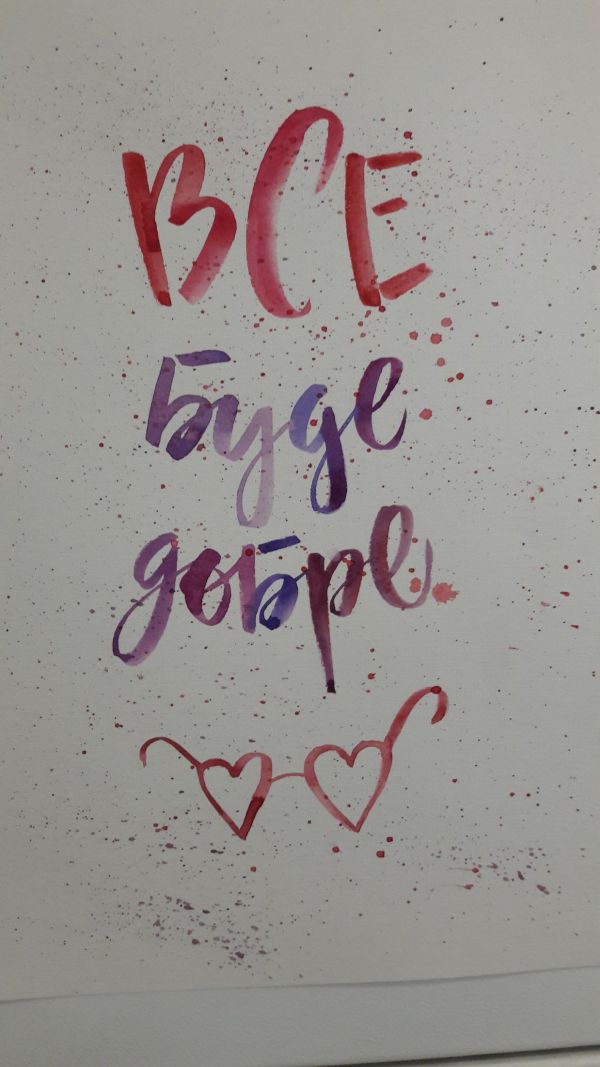 ВСЕ
буде
добре.